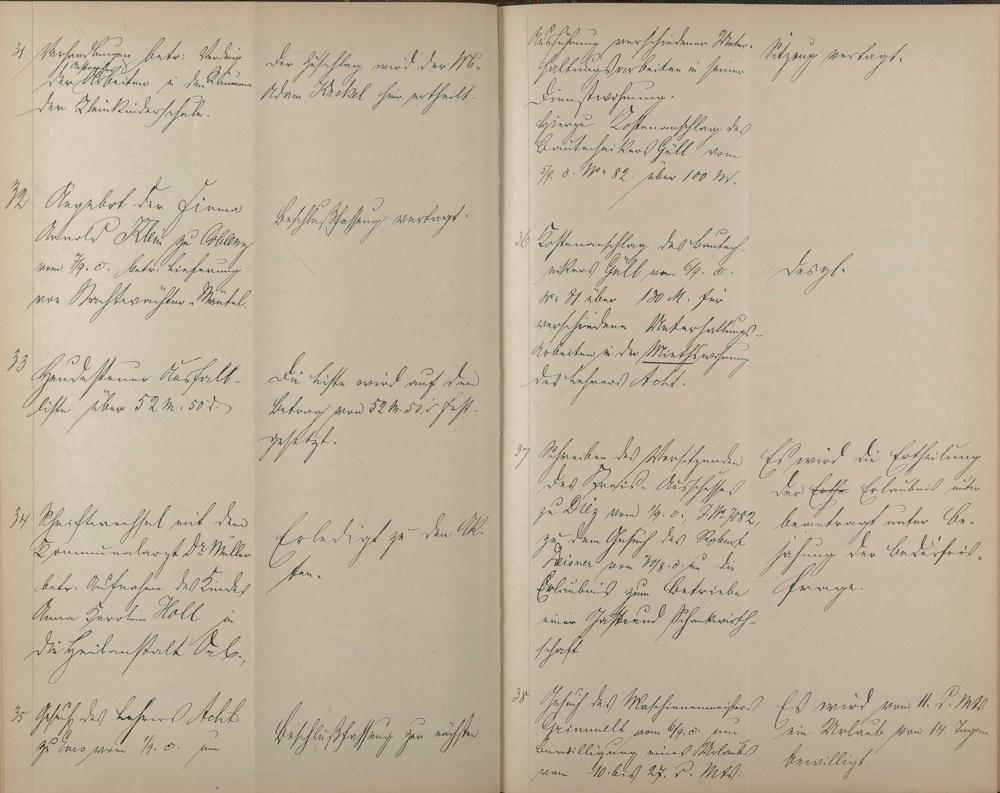 31 Verhandlungen betr: Verding
der Arbeiten in den Räumen
der Kleinkinderschule.
Der Zuschlag wird der
Adam hier ertheilt.
32 Angebot der Firma
Arnold Klein zu Coblenz
vom 7/9. c. betr. Lieferung
von Nachtwächter-Mäntel.
Beschlußfassung vertagt.
33 Hundesteuer Ausfall-
liste über 52 M. 50 d.
Die Liste wird auf den
Betrag von 52 M. 50 d fest-
gesetzt.
34 Schriftwechsel mit dem
Kommunalarzt Dr. Müller
betr. Aufnahme des Kindes
Anna Karolin Holl in
die Heilanstalt
Erledigt zu den Ak-
ten.
35 Gesuch des Lehrers Acht
zu Ems vom 1/9. c. um
Beschlußfassung zur nächsten
Ausführung verschiedener Unter-
haltungsarbeiten in seiner
Dienstwohnung.
Hierzu Kostenanschlag des
Bautechnikers Güll vom
5/9. c. No 82. über 100 M.
Sitzung vertagt.
36 Kostenanschlag des Bautech-
nikers Güll vom 6/9. c.
No 81 über 130 M. für
verschiedene Unterhaltungs-
Arbeiten in der Miethswohnung
des Lehrers Acht.
Desgl.
37 Schreiben des Vorsitzenden
des Kreis-Ausschusses
zu Diez vom 1/9. c. J. No 7082,
zu dem Gesuch des Robert
vom 30/8. c. um die
Erlaubnis zum Betriebe
einer Gast und Schankwirth-
schaft
Es wird die Ertheilung
der Erlaubnis unter
beantragt unter Be-
jahung der Bedürfnis-
frage.
38 Gesuch des Maschinenmeisters
Grimmelt vom 6/9. c. um
Bewilligung eines Urlaubs
vom 10. bis 27. d. Mts.
Es wird vom 11. d. Mts
ein Urlaub von 14. Tagen
bewilligt.